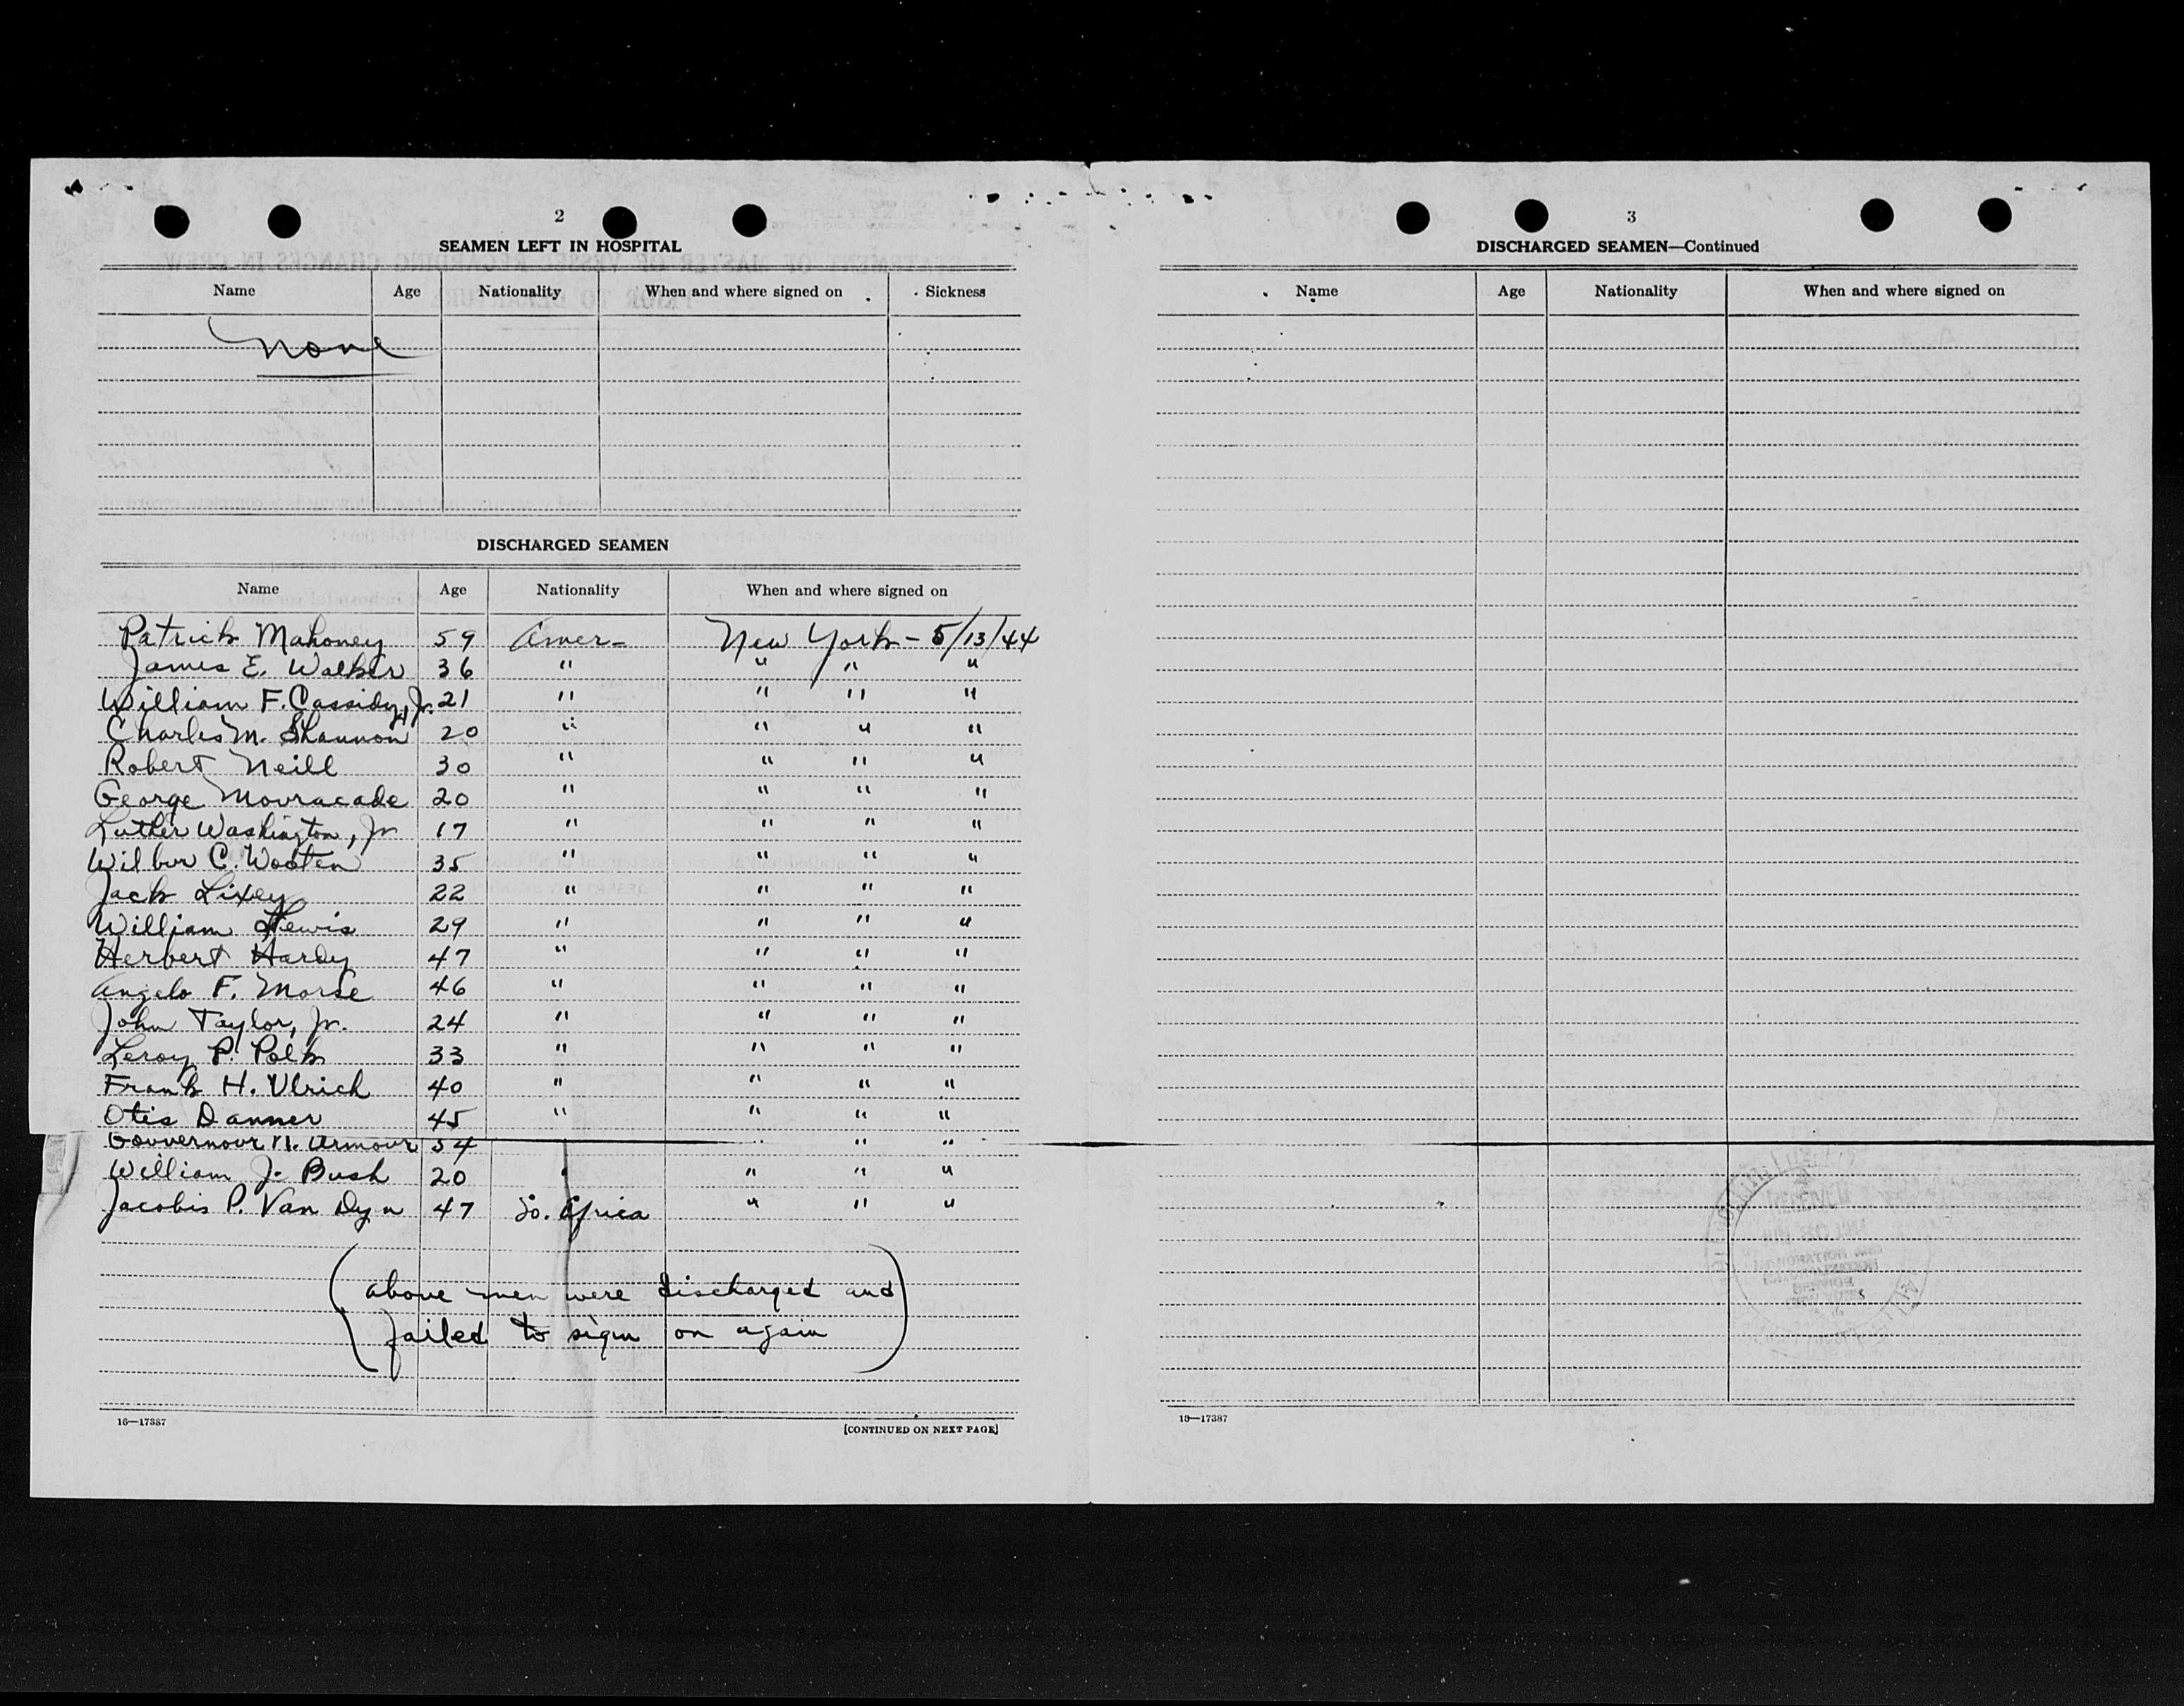 2
SEAMEN LEFT IN HOSPITAL
Name Age Nationality When and where signed on Sickness
None
DISCHARGED SEAMEN
Name Age Nationality When and where signed on
Patrick Mahoney 59 Amer- New York - 5/13/44
James E. Walker 36 " " " "
William F. Cassidy, Jr. 21 " " " "
Charles M. Shannon 20 " " " "
Robert Neill 30 " " " "
George Mouracade 20 " " " "
Luther Washington, Jr 17 " " " "
Wilbur C. Wooten 35 " " " "
Jack Lixey 22 " " " "
William Lewis 29 " " " "
Herbert Hardy 47 " " " "
Angelo F. Morse 46 " " " "
John Taylor, Jr. 24 " " " "
Leroy P. Polk 33 " " " "
Frank H. Ulrich 40 " " " "
Otis Danner 45 " " " "
Gouvernour N. Armour 54 " " "
William J. Bush 20 " " " "
Jacobis P. Van Dyn 47 So. Africa " " "
(above men were discharged and
failed to sign on again)
16—17387
[CONTINUED ON NEXT PAGE]
3
DISCHARGED SEAMEN—Continued
Name Age Nationality When and where signed on
16—17387